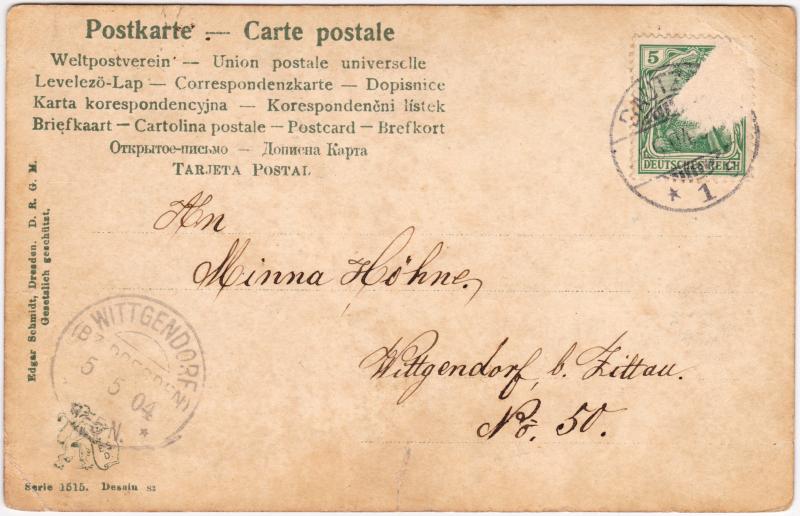 Postkarte — Carte postale
Weltpostverein — Union postale universelle
Levelező-Lap — Correspondenzkarte — Dopisnice
Karta korespondencyjna — Korespondenční lístek
Briefkaart — Cartolina postale — Postcard — Brefkort
Открытое-письмо — Дописна Карта
Tarjeta Postal
5
DEUTSCHES REICH
* 1
An
Minna Höhne,
Wittgendorf, b. Zittau.
No. 50.
WITTGENDORF
(BZ. DRESDEN)
5 5 04
N. *
Edgar Schmidt, Dresden. D. R. G. M.
Gesetzlich geschützt.
Serie 1515. Dessin